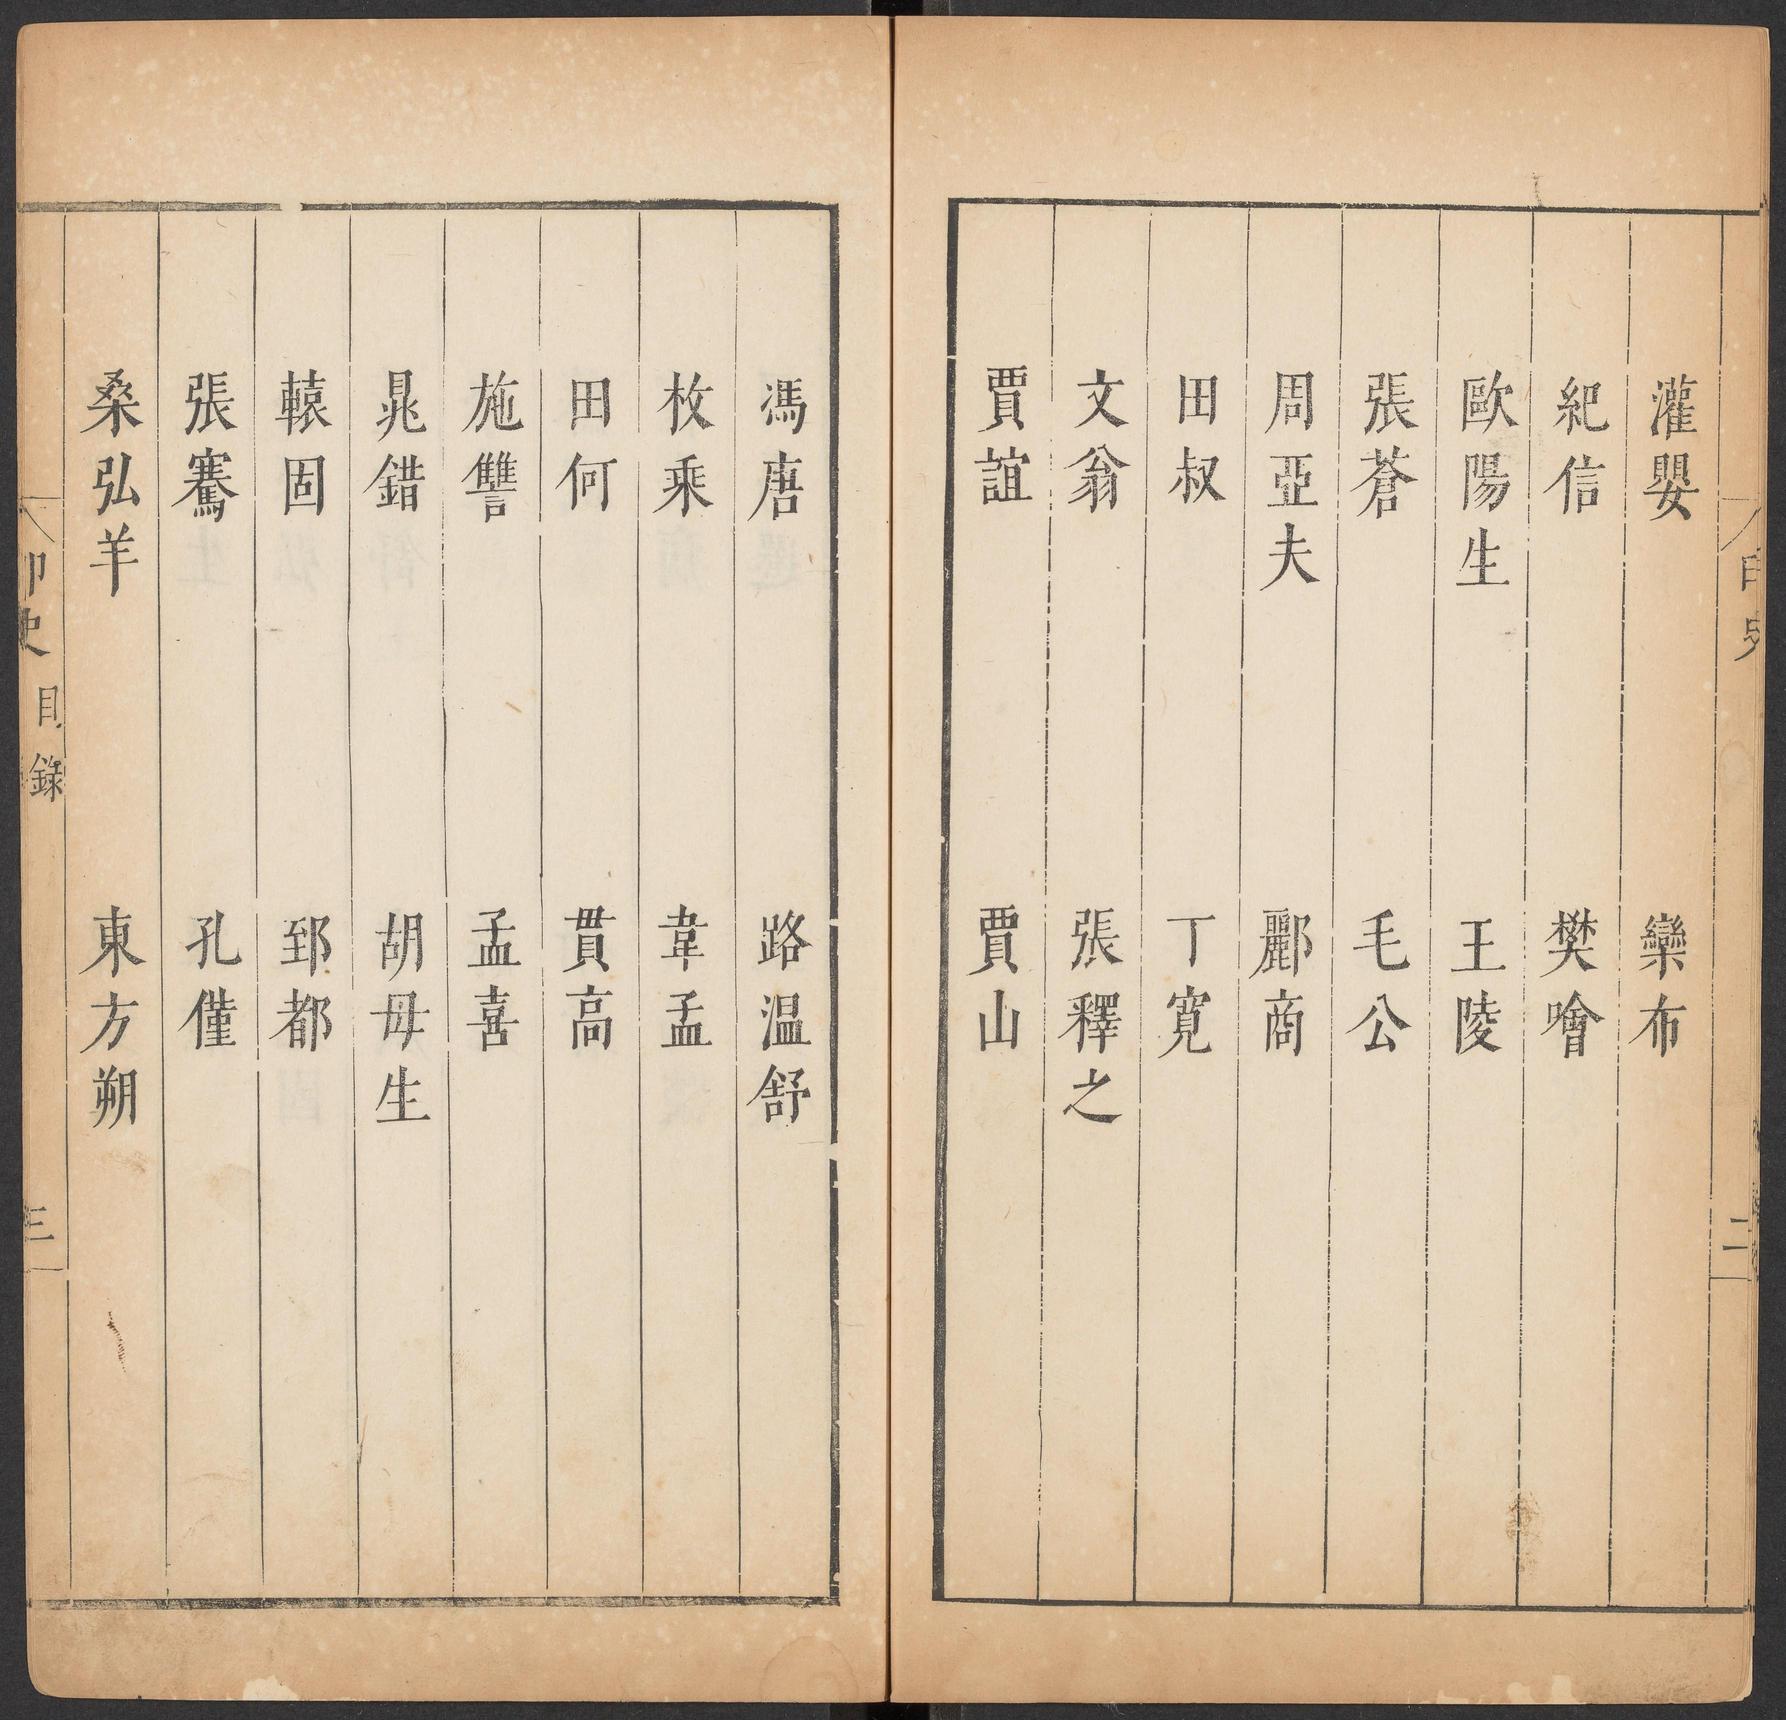 灌嬰 欒布
紀信 樊噲
歐陽生 王陵
張蒼 毛公
周亞夫 酈商
田叔 丁寛
文翁 張釋之
賈誼 賈山
二
馮唐 路温舒
枚乘 韋孟
田何 貫高
施讐 孟喜
晁錯 胡毋生
轅固 郅都
張騫 孔僅
桑弘羊 東方朔
印史 目錄 三